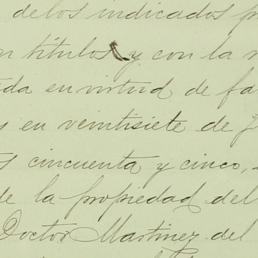 delos indicados
títulos y con la
en virtud de
en veintisiete de
cincuenta y cinco,
de la propiedad del
Doctor Martinez del